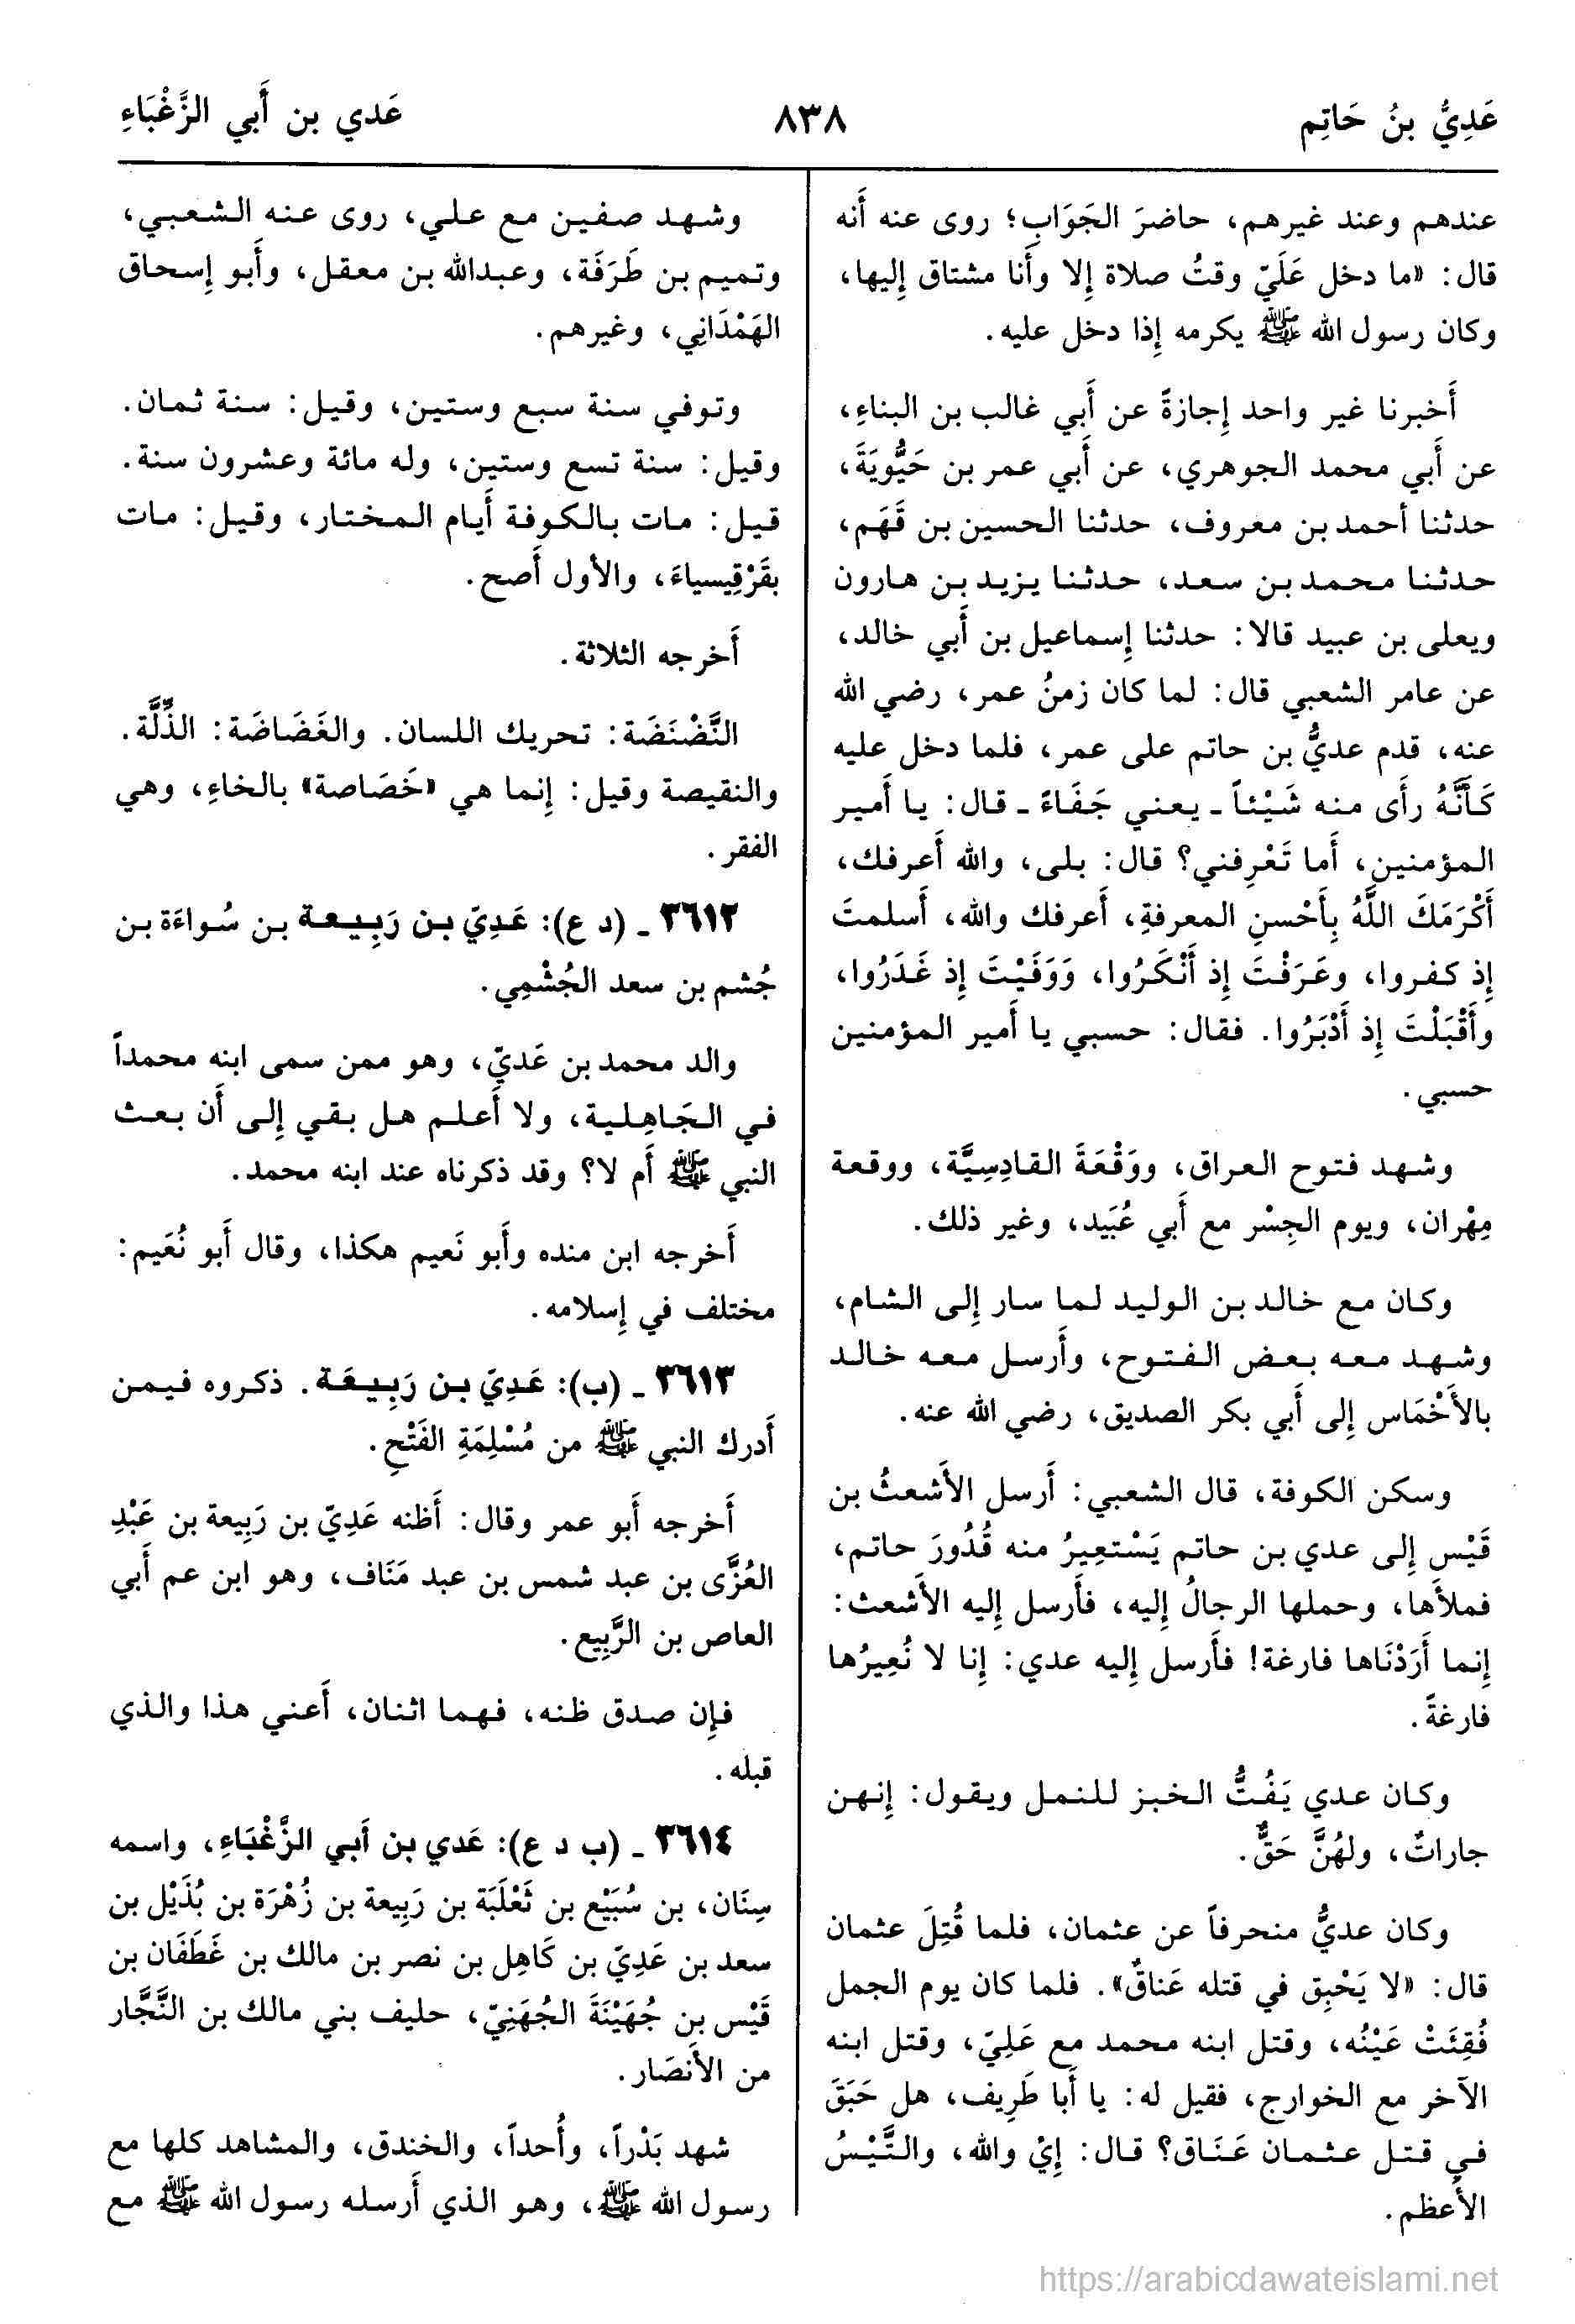 عَدِيُّ بنُ حَاتِم
٨٣٨
عَدي بن أَبي الزَّغْبَاءِ
عندهم وعند غيرهم، حاضرَ الجَوَابِ؛ روى عنه أَنه
قال: «ما دخل عَلَيّ وقتُ صلاة إِلا وأَنا مشتاق إِليها،
وكان رسول الله ﷺ يكرمه إِذا دخل عليه.
أَخبرنا غير واحد إِجازةً عن أَبي غالب بن البناءِ،
عن أَبي محمد الجوهري، عن أَبي عمر بن حَيُّويَةَ،
حدثنا أحمد بن معروف، حدثنا الحسين بن قَهَم،
حدثنا محمد بن سعد، حدثنا يزيد بن هارون
ويعلى بن عبيد قالا: حدثنا إِسماعيل بن أَبي خالد،
عن عامر الشعبي قال: لما كان زمنُ عمر، رضي الله
عنه، قدم عديُّ بن حاتم على عمر، فلما دخل عليه
كَأَنَّهُ رأَى منه شَيْئاً ـ يعني جَفَاءً ـ قال: يا أَمير
المؤمنين، أَما تَعْرِفني؟ قال: بلى، والله أَعرفك،
أَكْرَمَكَ اللَّهُ بِأَحْسنِ المعرفةِ، أَعرفك والله، أَسلمتَ
إِذ كفروا، وعَرَفْتَ إِذ أَنْكَرُوا، وَوَفَيْتَ إِذ غَدَرُوا،
وأَقْبَلْتَ إِذ أَدْبَرُوا. فقال: حسبي يا أَمير المؤمنين
حسبي.
وشهد فتوح العراق، ووَقْعَةَ القادِسِيَّة، ووقعة
مِهْران، ويوم الجِسْر مع أَبي عُبَيد، وغير ذلك.
وكان مع خالد بن الوليد لما سار إِلى الشام،
وشهد معه بعض الفتوح، وأَرسل معه خالد
بالأَخْمَاس إِلى أَبي بكر الصديق، رضي الله عنه.
وسكن الكوفة، قال الشعبي: أَرسل الأَشعثُ بن
قَيْس إِلى عدي بن حاتم يَسْتعِيرُ منه قُدُورَ حاتم،
فملأَها، وحملها الرجالُ إِليه، فأَرسل إِليه الأَشعث:
إِنما أَرَدْنَاها فارغة! فأَرسل إِليه عدي: إِنا لا نُعِيرُها
فارغةً.
وكان عدي يَفُتُّ الخبز للنمل ويقول: إِنهن
جاراتٌ، ولهُنَّ حَقٌّ.
وكان عديُّ منحرفاً عن عثمان، فلما قُتِلَ عثمان
قال: «لا يَحْبِق في قتله عَناقٌ». فلما كان يوم الجمل
فُقِئَتْ عَيْنُه، وقتل ابنه محمد مع عَلِيّ، وقتل ابنه
الآخر مع الخوارج، فقيل له: يا أَبا طَرِيف، هل حَبَقَ
في قتل عثمان عَنَاق؟ قال: إِيْ والله، والتَّيْسُ
الأَعظم.
وشهد صفين مع علي، روى عنه الشعبي،
وتميم بن طَرَفَة، وعبدالله بن معقل، وأَبو إِسحاق
الهَمْدَانِي، وغيرهم.
وتوفي سنة سبع وستين، وقيل: سنة ثمان.
وقيل: سنة تسع وستين، وله مائة وعشرون سنة.
قيل: مات بالكوفة أَيام المختار، وقيل: مات
بقَرْقِيسياءَ، والأول أَصح.
أَخرجه الثلاثة.
النَّضْنَضَة: تحريك اللسان. والغَضَاضَة: الذِّلَّة.
والنقيصة وقيل: إِنما هي «خَصَاصة» بالخاءِ، وهي
الفقر.
٣٦١٢ ـ (د ع): عَدِيّ بن رَبِيعة بن سُواءَة بن
جُشم بن سعد الجُشْمِي.
والد محمد بن عَديّ، وهو ممن سمى ابنه محمداً
في الجَاهِلية، ولا أَعلم هل بقي إِلى أَن بعث
النبي ﷺ أَم لا؟ وقد ذكرناه عند ابنه محمد.
أَخرجه ابن منده وأَبو نَعيم هكذا، وقال أَبو نُعَيم:
مختلف في إِسلامه.
٣٦١٣ ـ (ب): عَدِيّ بن رَبِيعَة. ذكروه فيمن
أَدرك النبي ﷺ من مُسْلِمَةِ الفَتْحِ.
أَخرجه أَبو عمر وقال: أَظنه عَدِيّ بن رَبِيعة بن عَبْدِ
العُزَّى بن عبد شمس بن عبد مَنَاف، وهو ابن عم أَبي
العاص بن الرَّبِيع.
فإِن صدق ظنه، فهما اثنان، أَعني هذا والذي
قبله.
٣٦١٤ ـ (ب د ع): عَدي بن أَبي الزَّغْبَاءِ، واسمه
سِنَان، بن سُبَيْع بن ثَعْلَبَة بن رَبِيعة بن زُهْرَة بن بُذَيْل بن
سعد بن عَدِيّ بن كَاهِل بن نصر بن مالك بن غَطَفَان بن
قَيْس بن جُهَيْنَةَ الجُهَنِيّ، حليف بني مالك بن النَّجَّار
من الأَنصَار.
شهد بَدْراً، وأُحداً، والخندق، والمشاهد كلها مع
رسول الله ﷺ، وهو الذي أَرسله رسول الله ﷺ مع
https://arabicdawateislami.net